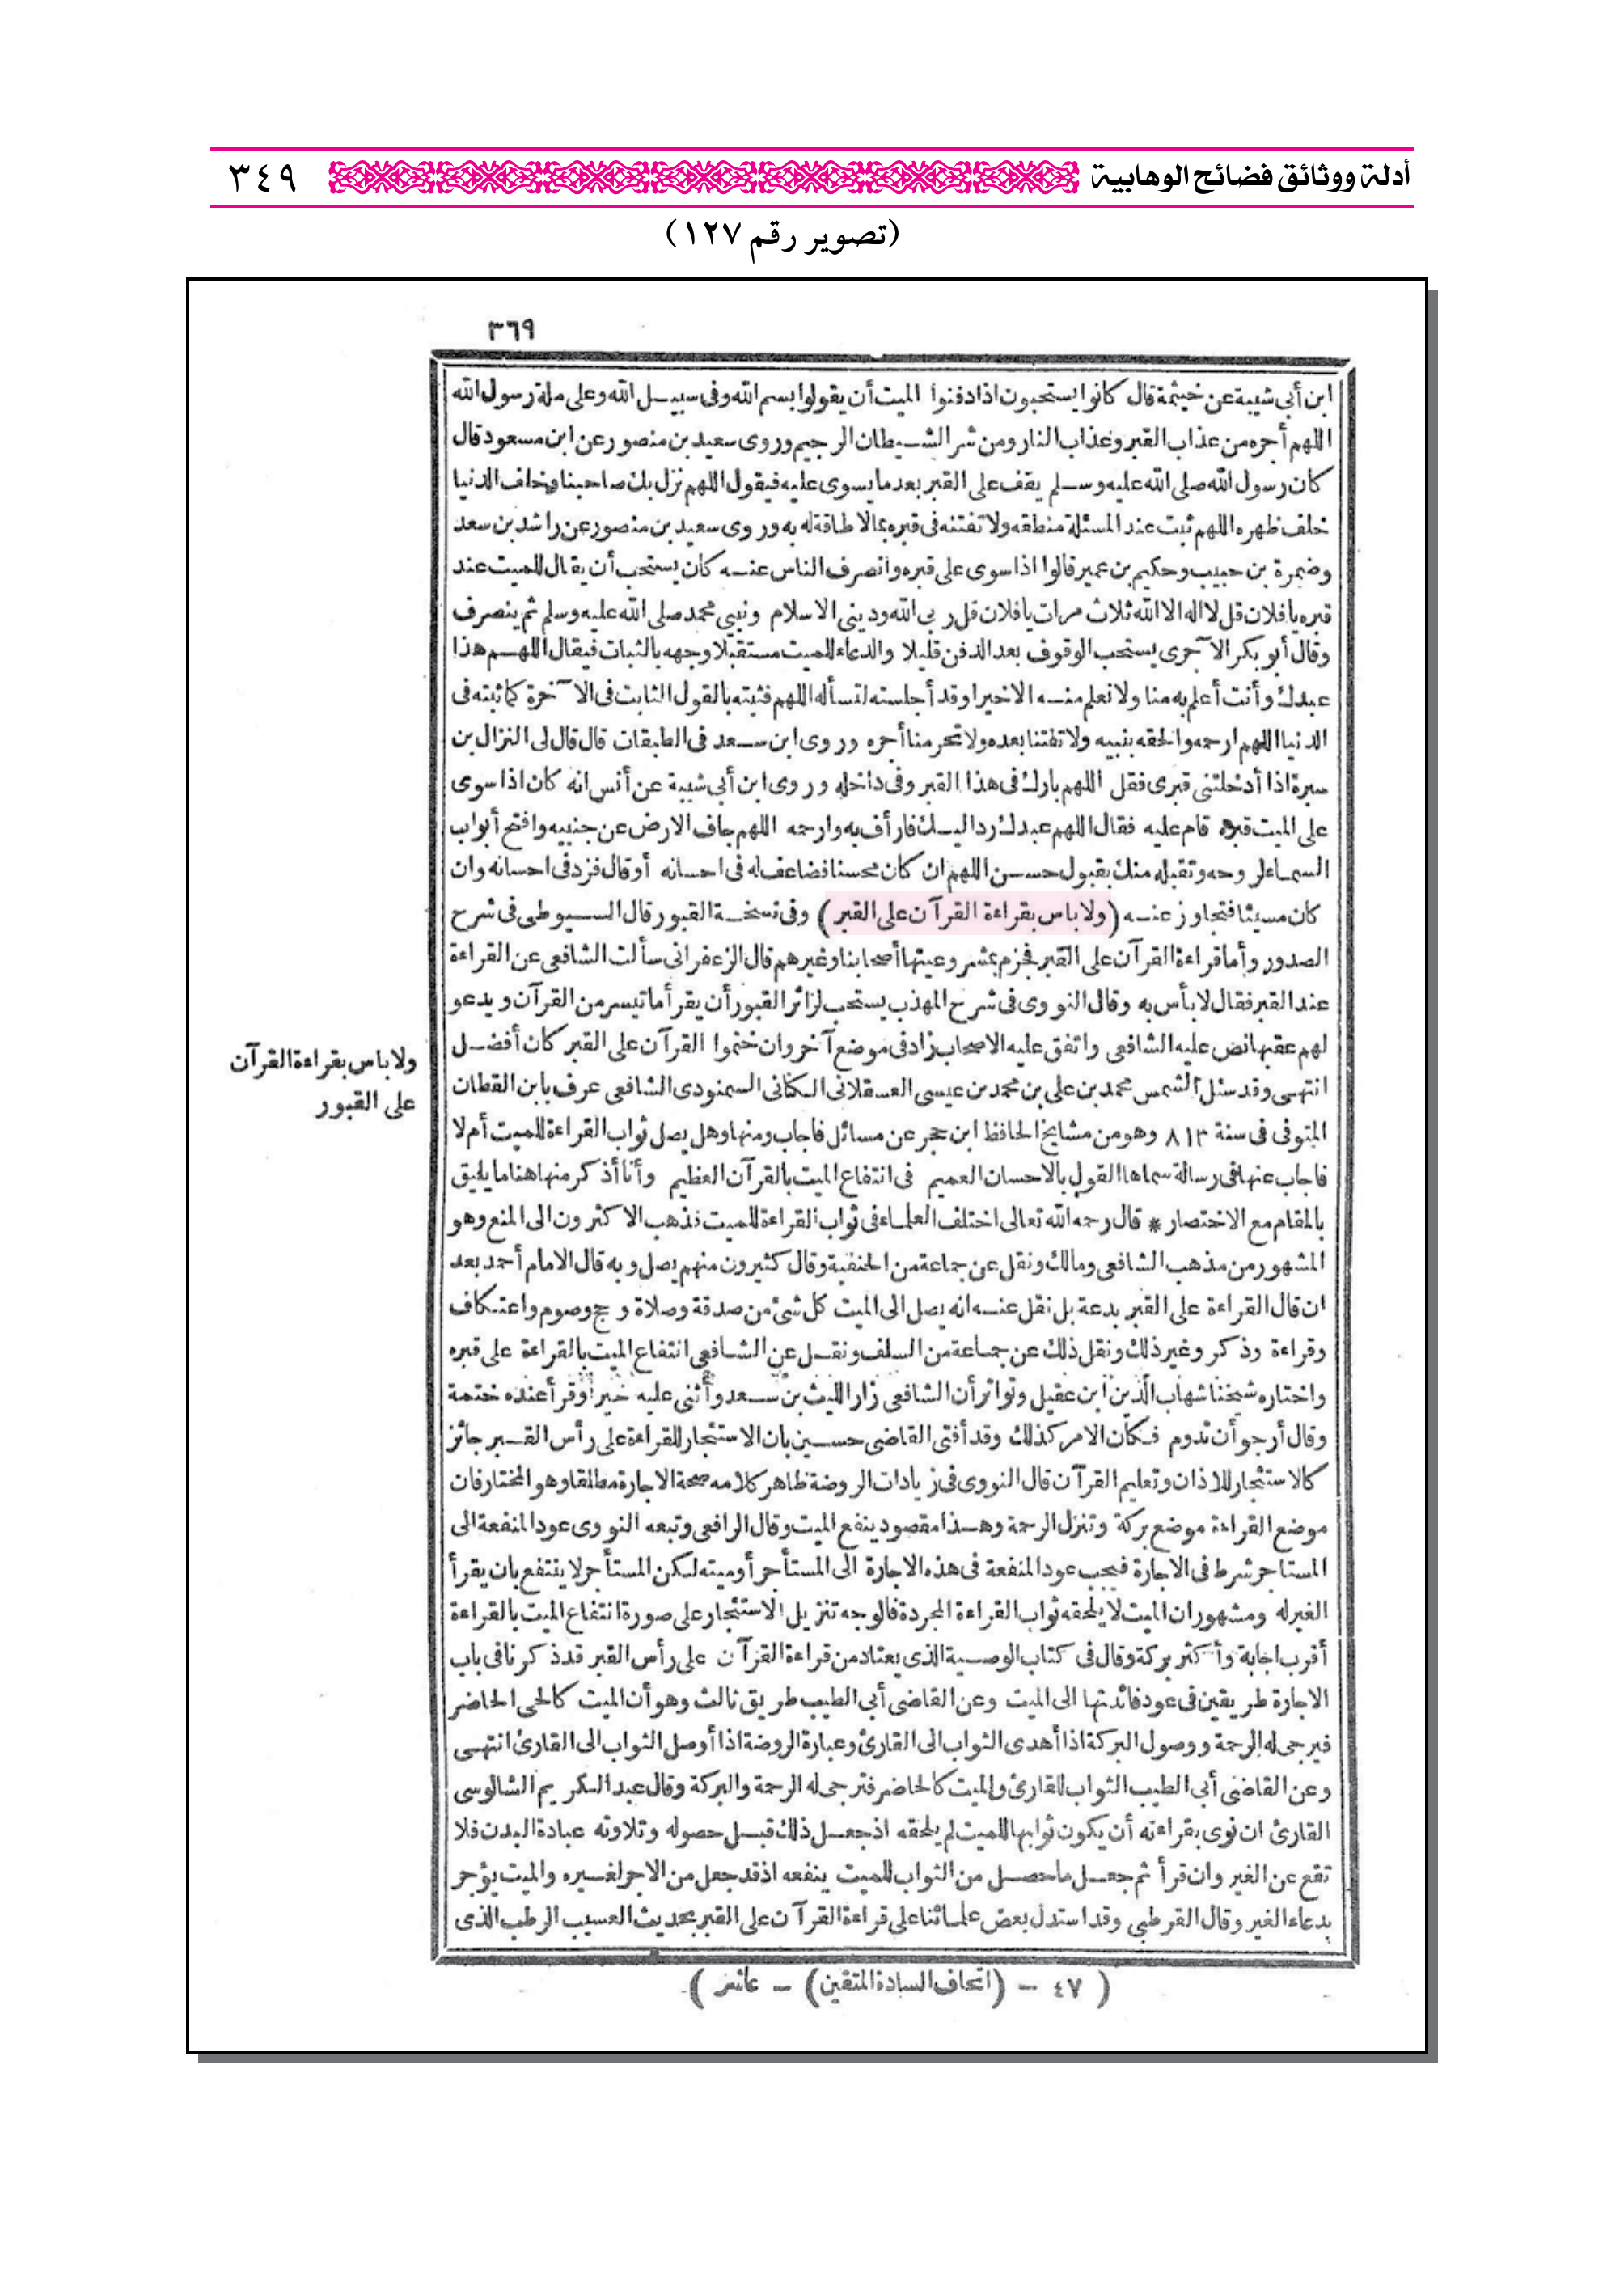 أدلة ووثائق فضائح الوهابية ٣٤٩
(تصوير رقم ١٢٧)
٣٦٩
ابن أبي شيبة عن خيثمة قال كانوا يستحبون اذا دفنوا الميت أن يقولوا بسم الله وفى سبيل الله وعلى ملة رسول الله
اللهم أجره من عذاب القبر وعذاب النار ومن شر الشيطان الرجيم وروى سعيد بن منصور عن ابن مسعود قال
كان رسول الله صلى الله عليه وسلم يقف على القبر بعد ما يسوى عليه فيقول اللهم نزل بك صاحبنا وخلف الدنيا
خلف ظهره اللهم ثبت عند المسئلة منطقه ولا تفتنه فى قبره بما لا طاقة له به وروى سعيد بن منصور عن راشد بن سعد
وضمرة بن حبيب وحكيم بن عمير قالوا اذا سوى على قبره وانصرف الناس عنه كان يستحب أن يقال للميت عند
قبره يا فلان قل لا اله الا الله ثلاث مرات يا فلان قل ربي الله وديني الاسلام ونبيي محمد صلى الله عليه وسلم ثم ينصرف
وقال أبو بكر الآجرى يستحب الوقوف بعد الدفن قليلا والدعاء للميت مستقبلا وجهه بالثبات فيقال اللهم هذا
عبدك وأنت أعلم به منا ولا نعلم منه الا خيرا وقد أجلسته لتسأله اللهم فثبته بالقول الثابت فى الآخرة كما ثبته فى
الدنيا اللهم ارحمه والحقه بنبيه ولا تفتنا بعده ولا تحرمنا أجره وروى ابن سعد فى الطبقات قال قال لى النزال بن
سبرة اذا أدخلتنى قبرى فقل اللهم بارك فى هذا القبر وفى داخله وروى ابن أبي شيبة عن أنس انه كان اذا سوى
على الميت قبره قام عليه فقال اللهم عبدك رد اليك فارأف به وارحمه اللهم جاف الارض عن جنبيه وافتح أبواب
السماء لروحه وتقبله منك بقبول حسن اللهم ان كان محسنا فضاعف له فى احسانه أو قال فزد فى احسانه وان
كان مسيئا فتجاوز عنه (ولا باس بقراءة القرآن على القبر) وفى نسخة القبور قال السيوطى فى شرح
الصدور وأما قراءة القرآن على القبر فجزم بمشروعيتها أصحابنا وغيرهم قال الزعفرانى سألت الشافعى عن القراءة
عند القبر فقال لا بأس به وقال النووى فى شرح المهذب يستحب لزائر القبور أن يقرأ ما تيسر من القرآن ويدعو
لهم عقبها نص عليه الشافعى واتفق عليه الاصحاب زاد فى موضع آخر وان ختموا القرآن على القبر كان أفضل
انتهى وقد سئل الشمس محمد بن على بن محمد بن عيسى العسقلانى الكنانى السمنودى الشافعى عرف بابن القطان
المتوفى فى سنة ٨١٣ وهو من مشايخ الحافظ ابن حجر عن مسائل فاجاب ومنها وهل يصل ثواب القراءة للميت أم لا
فاجاب عنها فى رسالة سماها القول بالاحسان العميم فى انتفاع الميت بالقرآن العظيم وأنا أذكر منها هنا ما يليق
بالمقام مع الاختصار * قال رحمه الله تعالى اختلف العلماء فى ثواب القراءة للميت فذهب الاكثرون الى المنع وهو
المشهور من مذهب الشافعى ومالك ونقل عن جماعة من الحنفية وقال كثيرون منهم يصل وبه قال الامام أحمد بعد
ان قال القراءة على القبر بدعة بل نقل عنه انه يصل الى الميت كل شئ من صدقة وصلاة وحج وصوم واعتكاف
وقراءة وذكر وغير ذلك ونقل ذلك عن جماعة من السلف ونقل عن الشافعى انتفاع الميت بالقراءة على قبره
واختاره شيخنا شهاب الدين ابن عقيل وتواتر أن الشافعى زار الليث بن سعد وأثنى عليه خيرا وقرأ عنده ختمة
وقال أرجو أن تدوم فكان الامر كذلك وقد أفتى القاضى حسين بان الاستئجار للقراءة على رأس القبر جائز
كالاستئجار للاذان وتعليم القرآن قال النووى فى زيادات الروضة ظاهر كلامه صحة الاجارة مطلقا وهو المختار فان
موضع القراءة موضع بركة وتنزل الرحمة وهذا مقصود ينفع الميت وقال الرافعى وتبعه النووى عود المنفعة الى
المستاجر شرط فى الاجارة فيجب عود المنفعة فى هذه الاجارة الى المستأجر أو ميته لكن المستأجر لا ينتفع بان يقرأ
الغير له ومشهور ان الميت لا يلحقه ثواب القراءة المجردة فالوجه تنزيل الاستئجار على صورة انتفاع الميت بالقراءة
أقرب اجابة وأكثر بركة وقال فى كتاب الوصية الذى يعتاد من قراءة القرآن على رأس القبر قد ذكرنا فى باب
الاجارة طريقين فى عود فائدتها الى الميت وعن القاضى أبى الطيب طريق ثالث وهو أن الميت كالحى الحاضر
فيرجى له الرحمة ووصول البركة اذا أهدى الثواب الى القارئ وعبارة الروضة اذا أوصل الثواب الى القارئ انتهى
وعن القاضى أبى الطيب الثواب للقارئ والميت كالحاضر فترجى له الرحمة والبركة وقال عبد الكريم الشالوسى
القارئ ان نوى بقراءته أن يكون ثوابها للميت لم يلحقه اذ جعل ذلك قبل حصوله وتلاوته عبادة البدن فلا
تقع عن الغير وان قرأ ثم جعل ما حصل من الثواب للميت ينفعه اذ قد جعل من الاجر لغيره والميت يؤجر
بدعاء الغير وقال القرطبى وقد استدل بعض علمائنا على قراءة القرآن على القبر بحديث العسيب الرطب الذى
ولا باس بقراءة القرآن
على القبور
( ٤٧ - (اتحاف السادة المتقين) - عاشر )